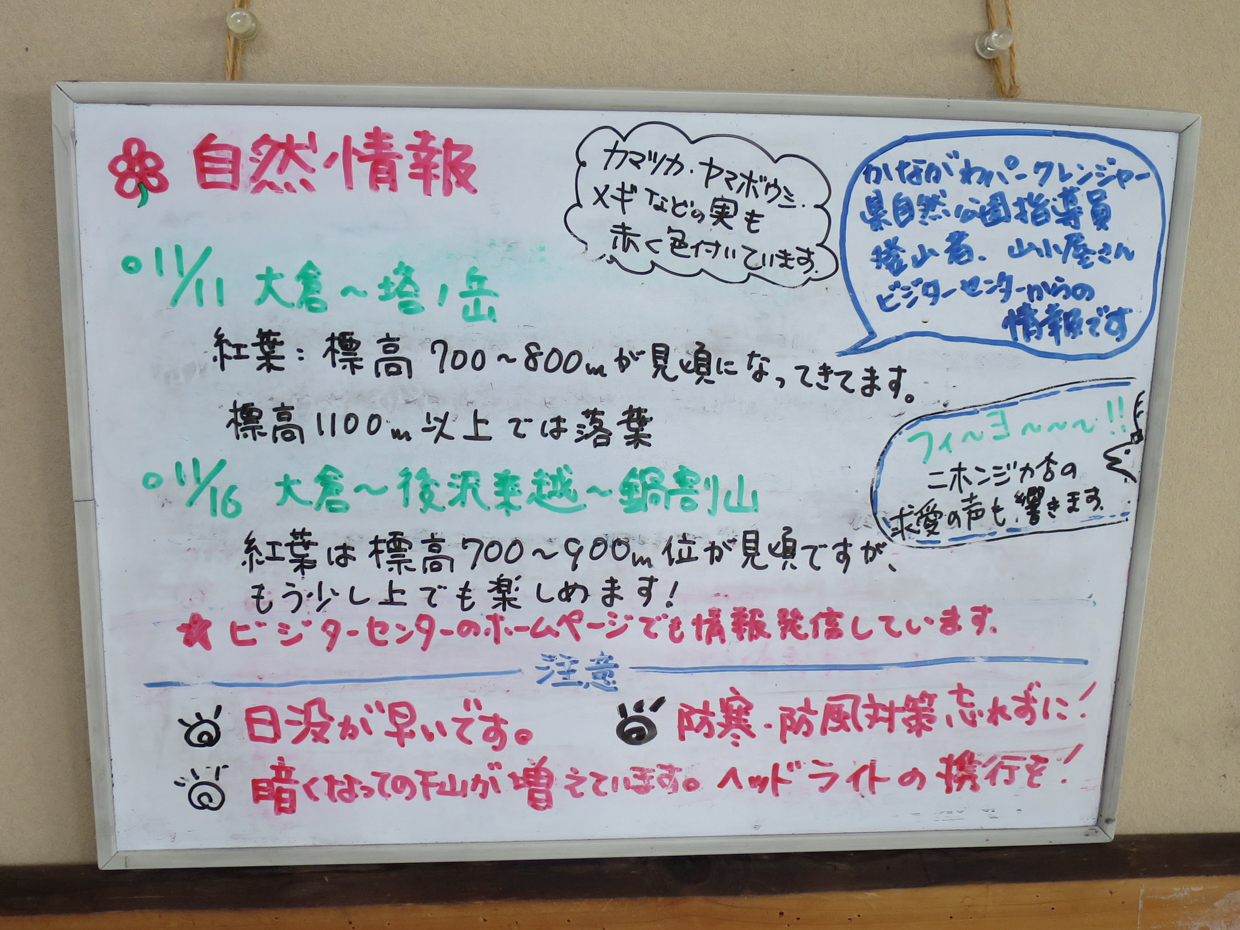 自然情報
カマツカ.ヤマボウシ.
メギなどの実も
赤く色付いています.
かながわパークレンジャー
県自然公園指導員
登山者、山小屋さん
ビジターセンターからの
情報です
○11/11 大倉～塔ノ岳
紅葉:標高700～800mが見頃になってきてます。
標高1100m以上では落葉
フィ～ヨ～～～!!
ニホンジカ♂の
求愛の声も響きます.
○11/16 大倉～後沢乗越～鍋割山
紅葉は標高700～900m位が見頃ですが、
もう少し上でも楽しめます!
★ビジターセンターのホームページでも情報発信しています.
注意
日没が早いです。
防寒.防風対策忘れずに!
暗くなっての下山が増えています。ヘッドライトの携行を!